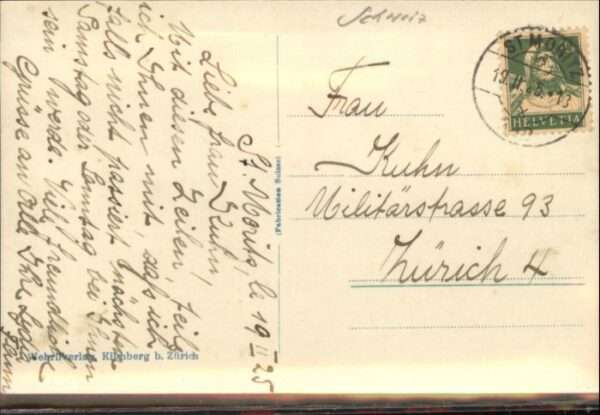 Schweiz
St. Moritz, le 19 II 25
Liebe Frau Kuhn!
Mit diesen Zeilen, teile
ich Ihnen mit, dass ich
falls nicht passiert nächsten
Samstag oder Sonntag bei Ihnen
sein werde. Viele freundliche
Grüsse an Alle Ihre
(Fabrication Suisse)
Wehrliverlag, Kilchberg b. Zürich
ST. MORITZ
19.II.25
HELVETIA
Frau
Kuhn
Militärstrasse 93
Zürich 4